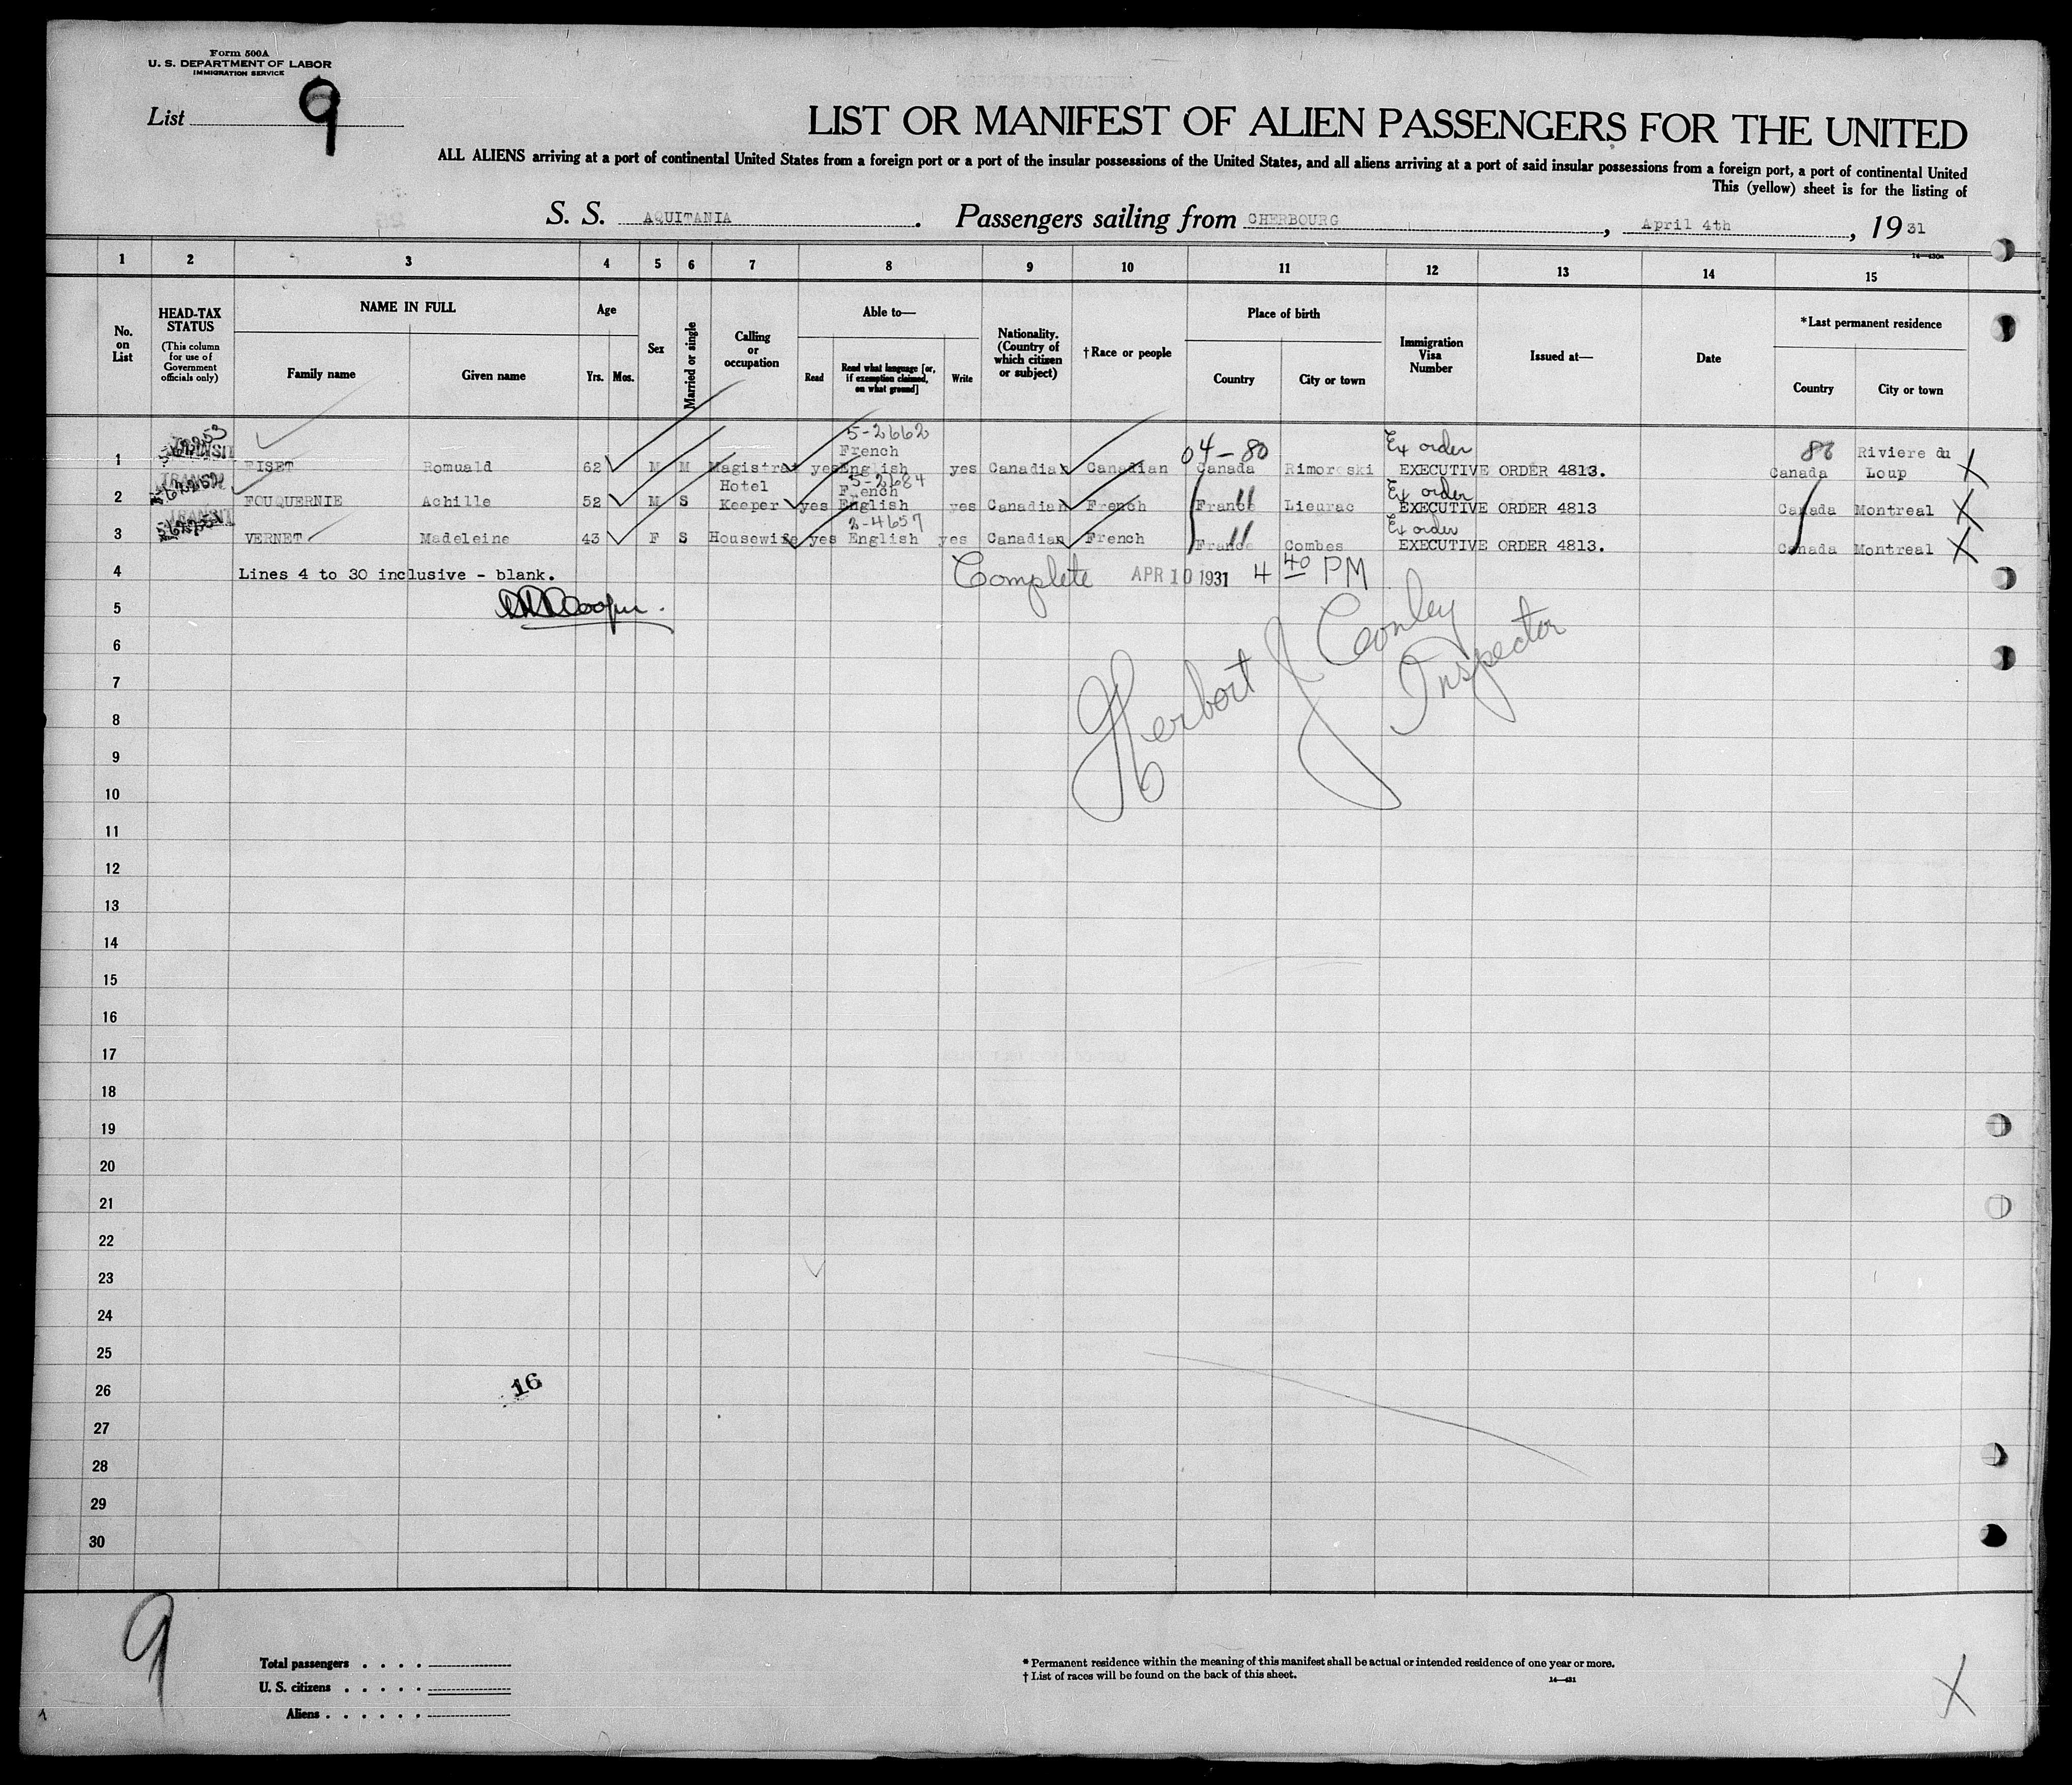 Form 500A
U. S. DEPARTMENT OF LABOR
IMMIGRATION SERVICE
List 9
LIST OR MANIFEST OF ALIEN PASSENGERS FOR THE UNITED
ALL ALIENS arriving at a port of continental United States from a foreign port or a port of the insular possessions of the United States, and all aliens arriving at a port of said insular possessions from a foreign port, a port of continental United
This (yellow) sheet is for the listing of
S. S. AQUITANIA. Passengers sailing from CHERBOURG, April 4th, 1931
1 2 3 4 5 6 7 8 9 10 11 12 13 14 15
No. on List
HEAD-TAX STATUS (This column for use of Government officials only)
NAME IN FULL
Family name Given name
Age
Yrs. Mos.
Sex
Married or single
Calling or occupation
Able to—
Read
Read what language [or, if exemption claimed, on what ground]
Write
Nationality. (Country of which citizen or subject)
† Race or people
Place of birth
Country City or town
Immigration Visa Number
Issued at—
Date
*Last permanent residence
Country City or town
5-2662
French 04-80 Ex order 88 Riviere du
1 TRANSIT FISET Romuald 62 M M Magistrat yes English yes Canadian Canadian Canada EXECUTIVE ORDER 4813. Canada Loup X
Hotel 5-2684
French 11 Ex order
2 TRANSIT FOUQUERNIE Achille 52 M S Keeper yes English yes Canadian French France Lieurac EXECUTIVE ORDER 4813 Canada Montreal X
2-4657 11 Ex order
3 TRANSIT VERNET Madeleine 43 F S Housewife yes English yes Canadian French France Combes EXECUTIVE ORDER 4813. Canada Montreal X
4 Lines 4 to 30 inclusive - blank. Complete APR 10 1931 4 40 PM
5 Cooper.
Herbert J Conley
Inspector
6
7
8
9
10
11
12
13
14
15
16
17
18
19
20
21
22
23
24
25
26 16
27
28
29
30
9
Total passengers . . . .
U. S. citizens . . . . .
Aliens . . . . . .
* Permanent residence within the meaning of this manifest shall be actual or intended residence of one year or more.
† List of races will be found on the back of this sheet.
X